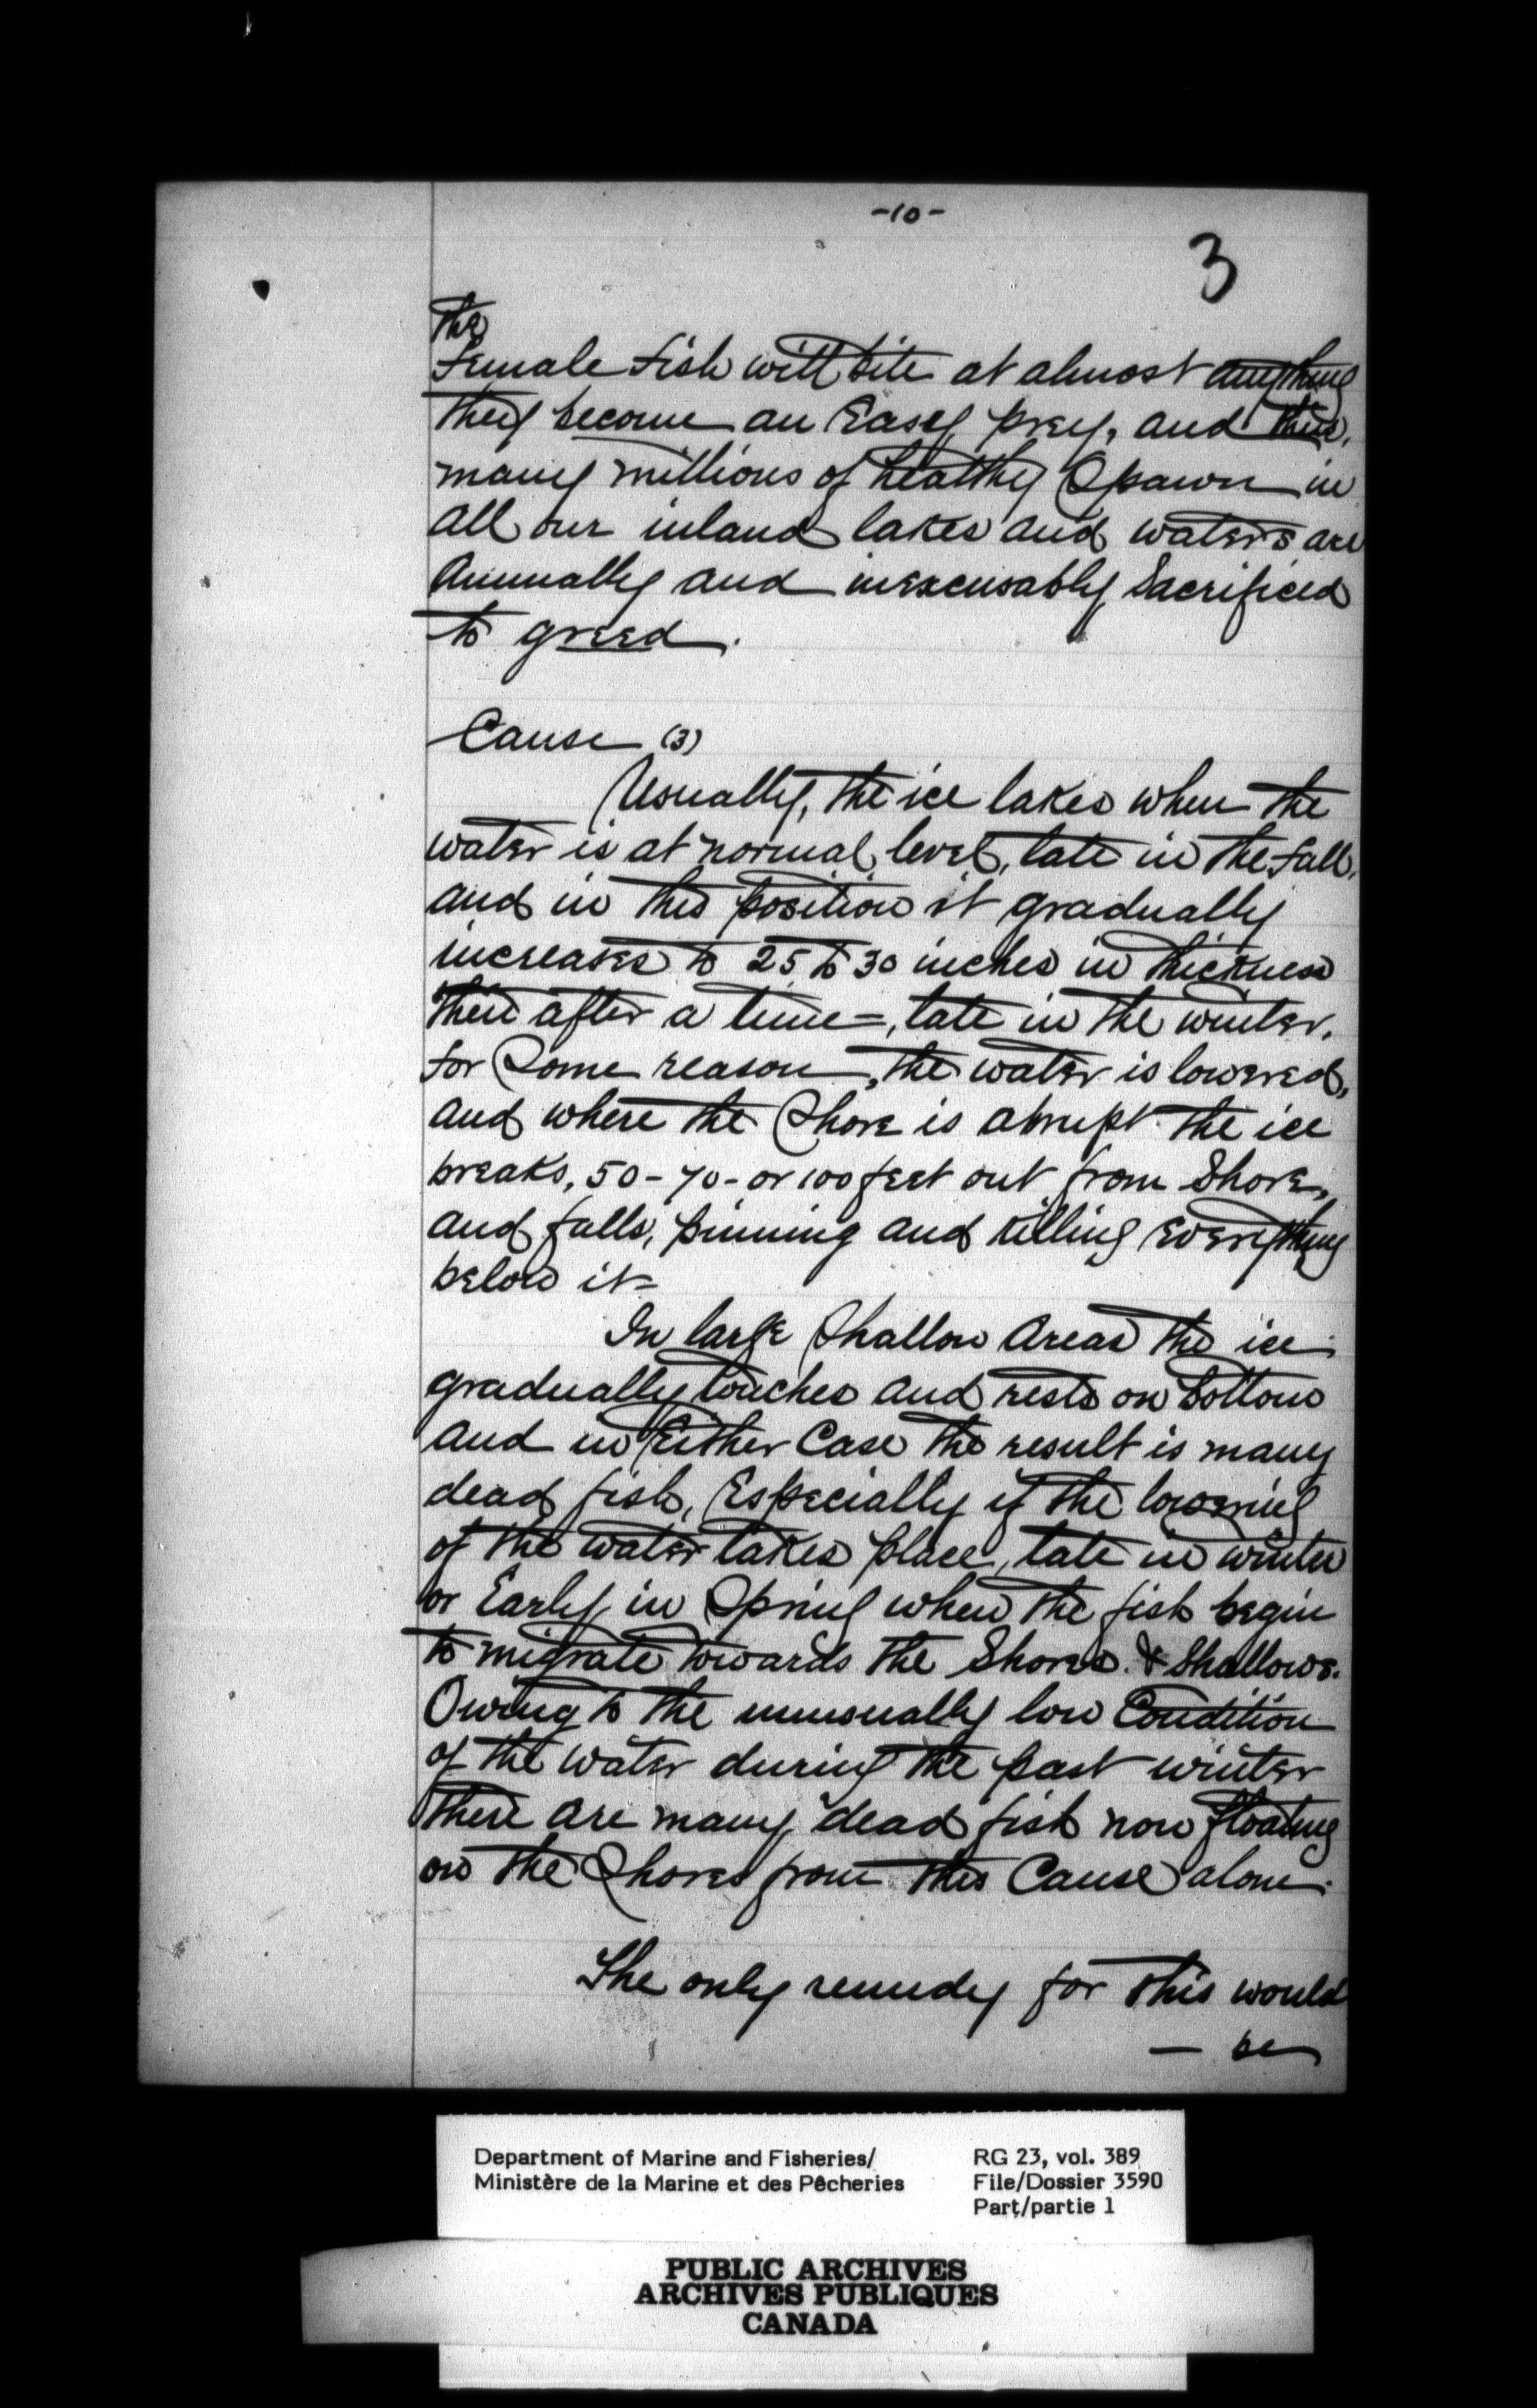 -10-
3
The
Female fish will bite at almost anything
they become an Easy prey, and thus,
many millions of healthy Spawn in
all our inland lakes and waters are
Annually and inexcusably Sacrificed
to greed.
Cause (3)
Usually, the ice takes when the
water is at normal level, late in the fall,
and in this position it gradually
increases to 25 to 30 inches in thickness
then after a time-, late in the winter,
for Some reason, the water is lowered,
and where the Shore is abrupt the ice
breaks, 50-70-or 100 feet out from Shore,
and falls, pinning and killing Everything
below it-
In large Shallow Areas the ice
gradually touches and rests on bottom
and in Either Case the result is many
dead fish, Especially if the lowering
of the water takes place, late in winter
or Early in Spring when the fish begin
to migrate towards the Shores. & Shallows.
Owing to the unusually low Condition
of the water during the past winter
there are many dead fish now floating
on the Shores from this Cause alone.
The only remedy for this would
— be
Department of Marine and Fisheries/
Ministère de la Marine et des Pêcheries
RG 23, vol. 389
File/Dossier 3590
Part/partie 1
PUBLIC ARCHIVES
ARCHIVES PUBLIQUES
CANADA